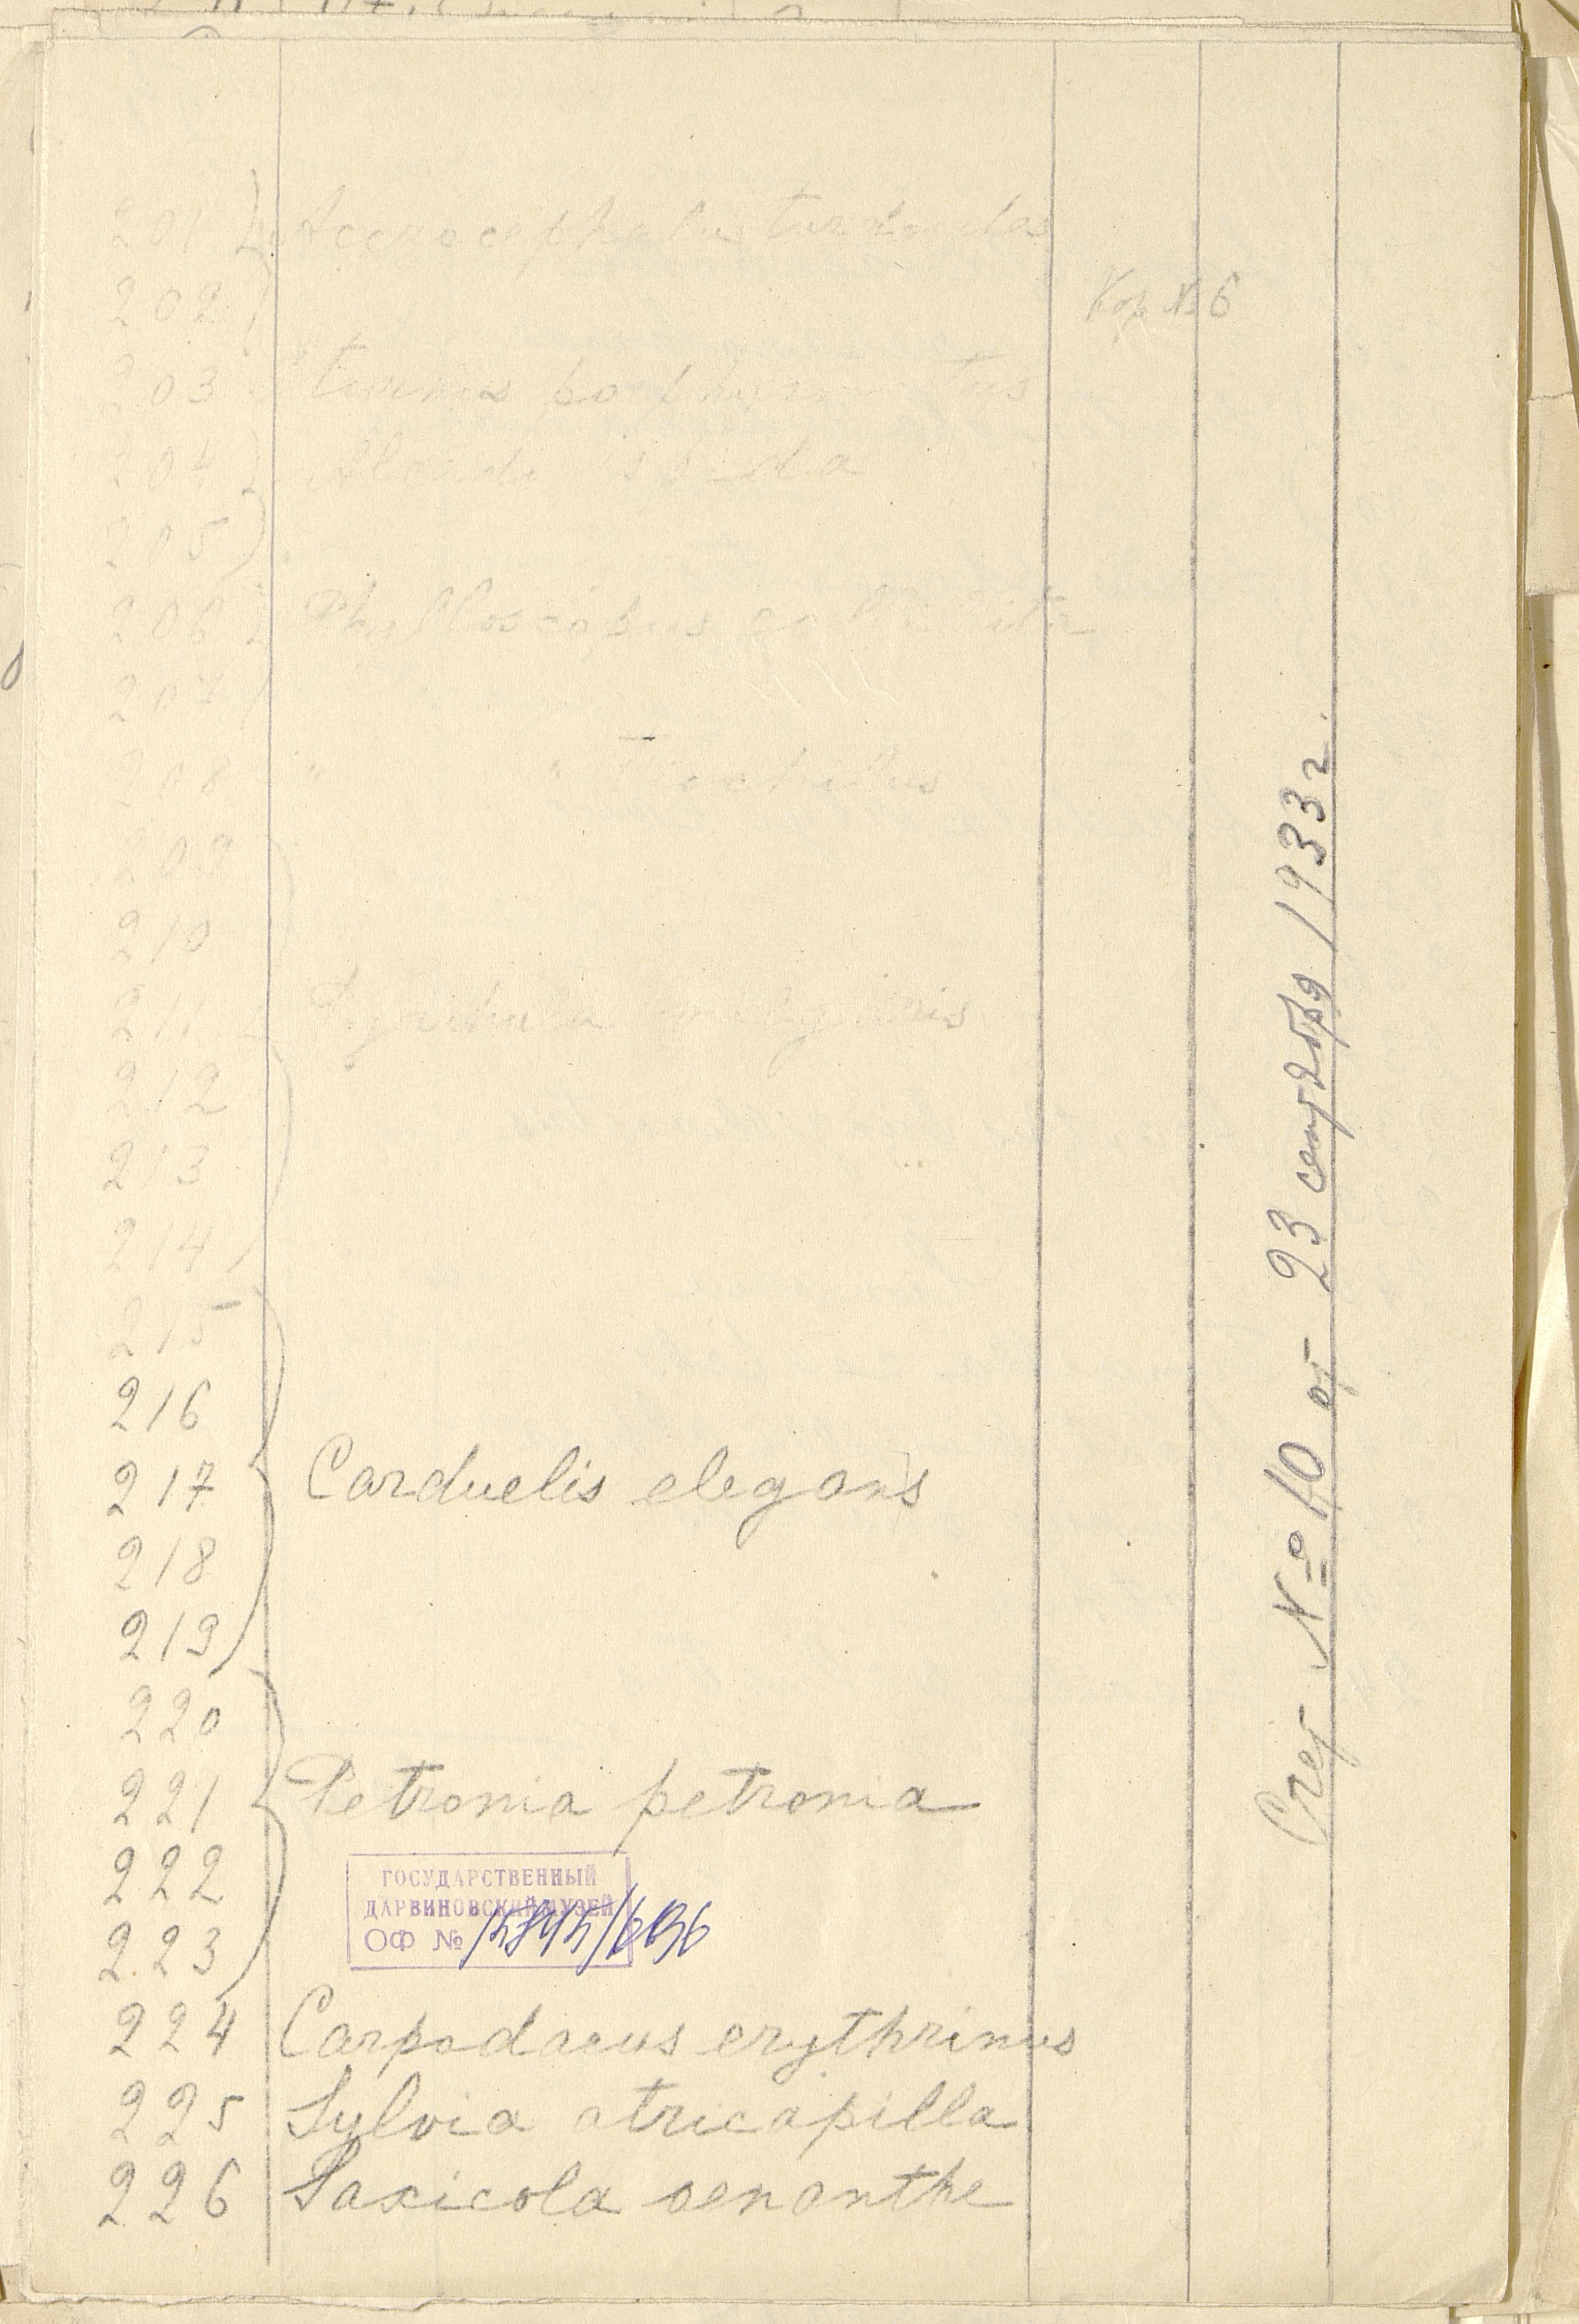 201 turdoides
202 Кор №6
203
204 Alcedo ispida
205
206 Phylloscopus collibita
207
208 " " Trochillus
209
210
211 Pyrrhula
212
213
214
215
216
217 Carduelis elegans
218
219
220
221 Petronia petronia
222
223
224 Carpodacus erythrinus
225 Sylvia atricapilla
226 Saxicola oenanthe
ГОСУДАРСТВЕННЫЙ
ДАРВИНОВСКИЙ МУЗЕЙ
ОФ №
Счет № 40 от 23 сентября 1933 г.